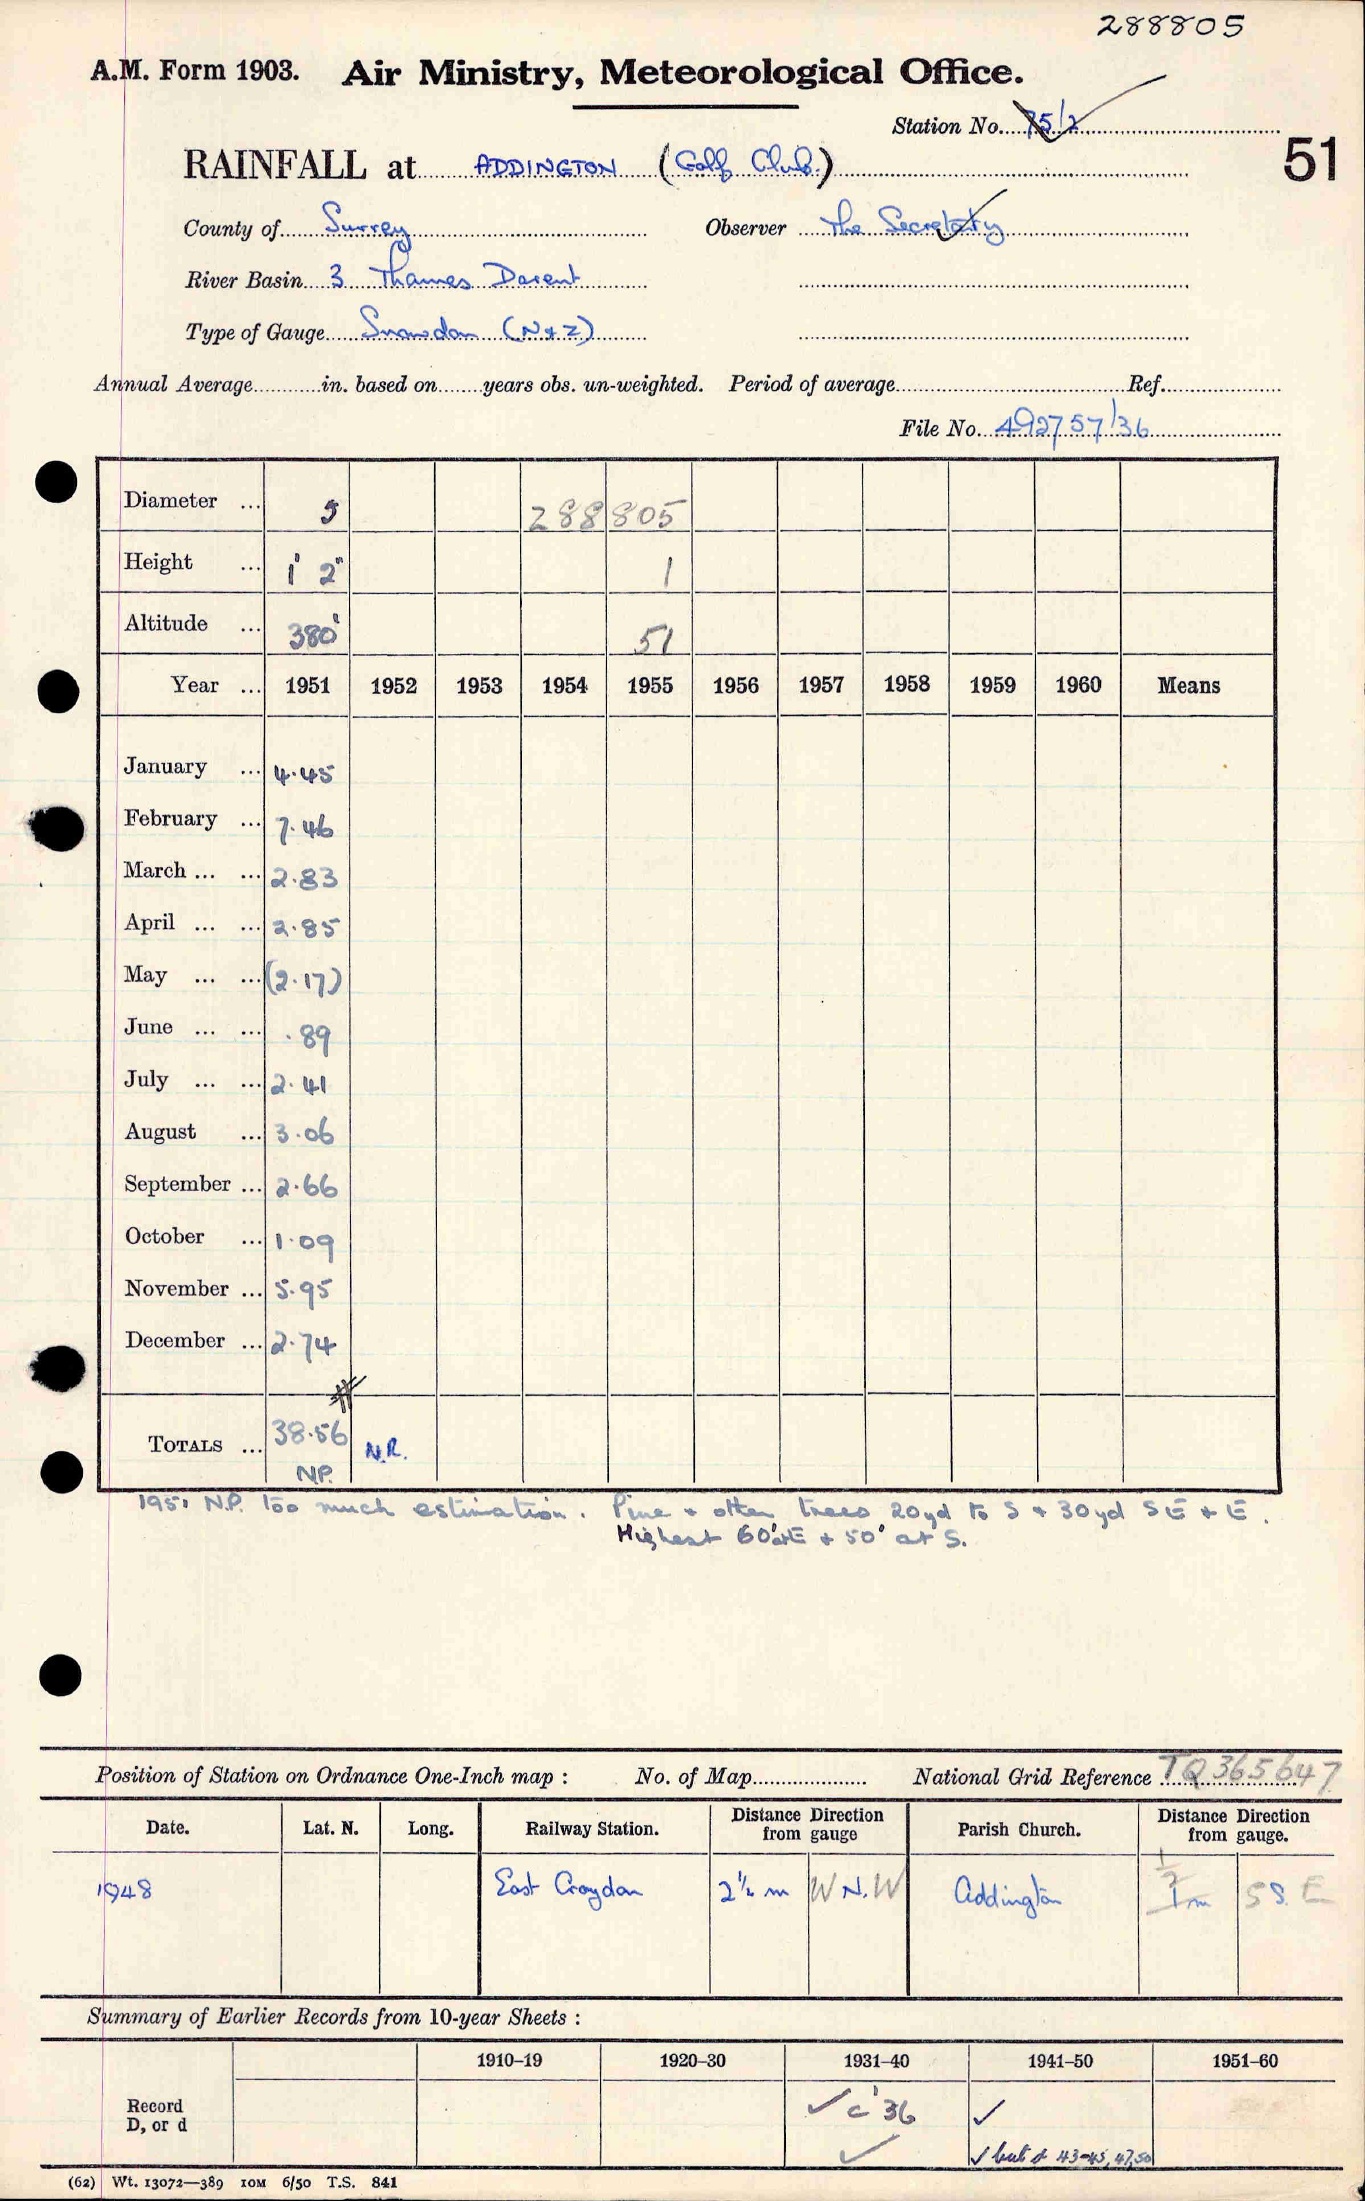 288805
A.M. Form 1903. Air Ministry, Meteorological Office.
Station No. 75/2
51
RAINFALL at ADDINGTON (Golf Club.)
County of Surrey Observer The Secretary
River Basin 3 Thames Darent
Type of Gauge Snowdon (N & Z)
Annual Average in. based on years obs. un-weighted. Period of average Ref.
File No. 492757/36
Diameter ... 5 288805
Height ... 1' 2" 1
Altitude ... 380' 51
Year ... 1951 1952 1953 1954 1955 1956 1957 1958 1959 1960 Means
January ... 4.45
February ... 7.46
March ... ... 2.83
April ... ... 2.85
May ... ... (2.17)
June ... ... .89
July ... ... 2.41
August ... 3.06
September ... 2.66
October ... 1.09
November ... 5.95
December ... 2.74
TOTALS ... 38.56 N.R.
N.P.
1951 N.P. too much estimation. Pine + other trees 20yd to S + 30yd SE + E.
Highest 60' at E + 50' at S.
Position of Station on Ordnance One-Inch map : No. of Map National Grid Reference TQ 365647
Date. Lat. N. Long. Railway Station. Distance Direction from gauge Parish Church. Distance Direction from gauge.
1948 East Croydon 2½ m W N.W Addington ½ 1m S S. E
Summary of Earlier Records from 10-year Sheets :
1910–19 1920–30 1931–40 1941–50 1951–60
Record D, or d ✓ c '36 ✓
✓ ✓ but d 43-45, 47, 50
(62) Wt. 13072—389 10M 6/50 T.S. 841